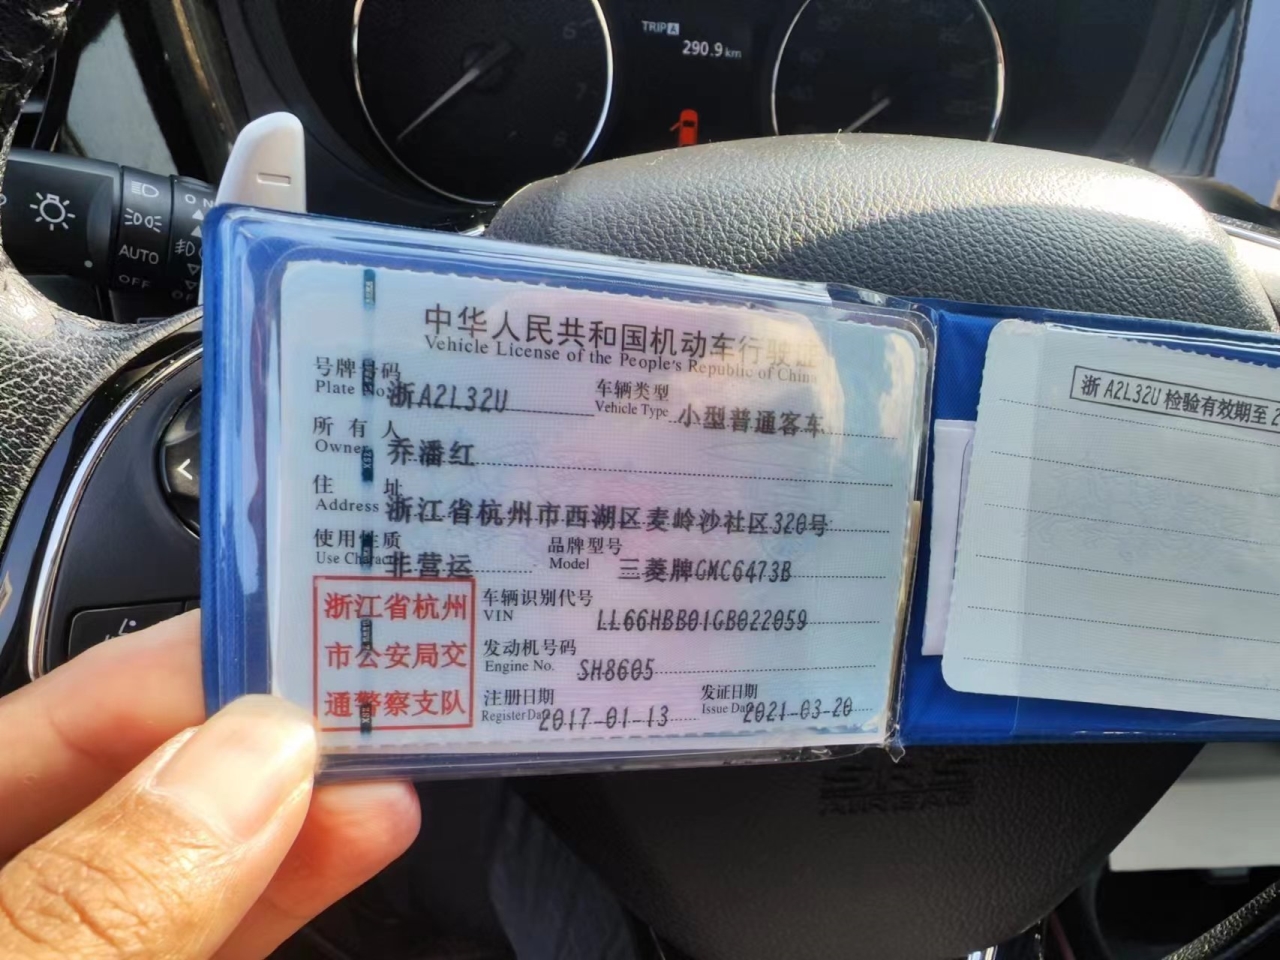 TRIP A
290.9 km
AUTO
OFF
中华人民共和国机动车行驶证
Vehicle License of the People's Republic of China
号牌号码
Plate No.
浙A2L32U
车辆类型
Vehicle Type
小型普通客车
所有人
Owner
乔潘红
住址
Address
浙江省杭州市西湖区麦岭沙社区320号
使用性质
Use Character
非营运
品牌型号
Model
三菱牌GMC6473B
浙江省杭州
市公安局交
通警察支队
车辆识别代号
VIN
LL66HBB01GB022059
发动机号码
Engine No.
SH8605
注册日期
Register Date
2017-01-13
发证日期
Issue Date
2021-03-20
浙A2L32U检验有效期至2
SRS
AIRBAG